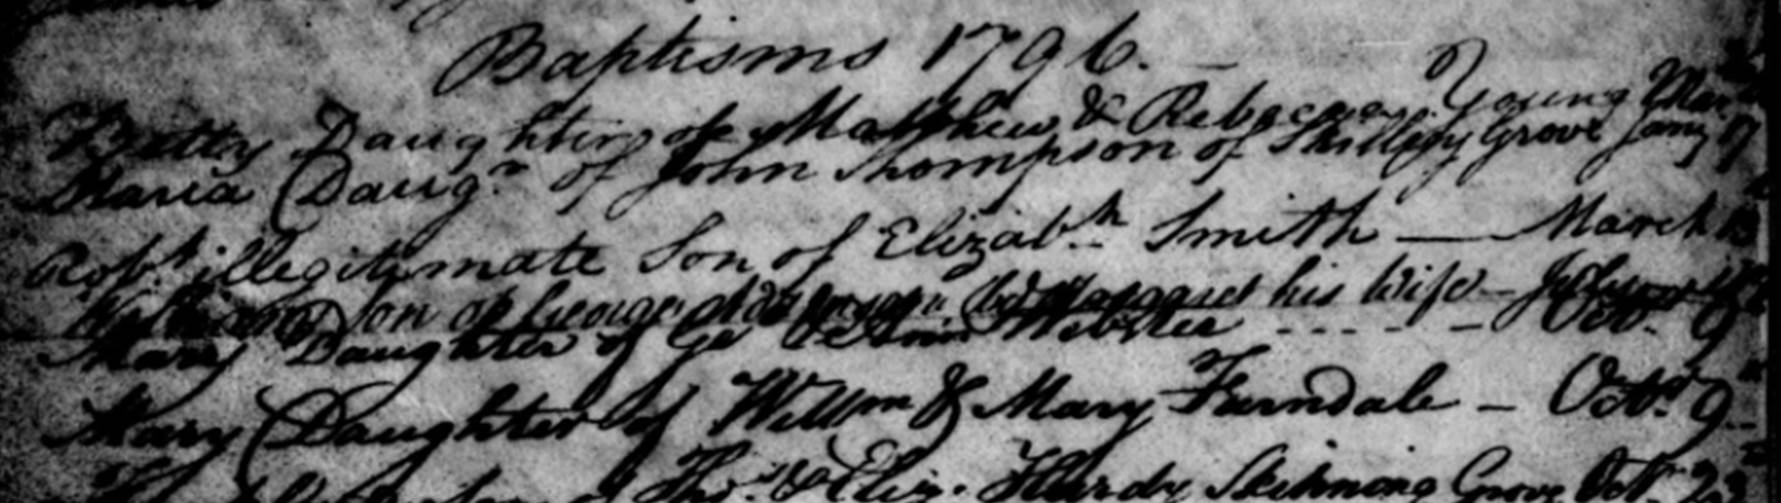 Baptisms 1796.
Betty Daughter of Matthew & Rebecca Young Mar.
Maria Daugr. of John Thompson of Skilling Grove Jany 17
Robt. illegitimate Son of Elizabth. Smith — March 13
William Son of George his Wife -
Mary Daughter of Geo & Ann Webster - - - - - Octr. 9
Mary Daughter of Willm & Mary Farndale - Octr. 9
Thos. & Eliz. Hardy Skinning Grove Octr 23